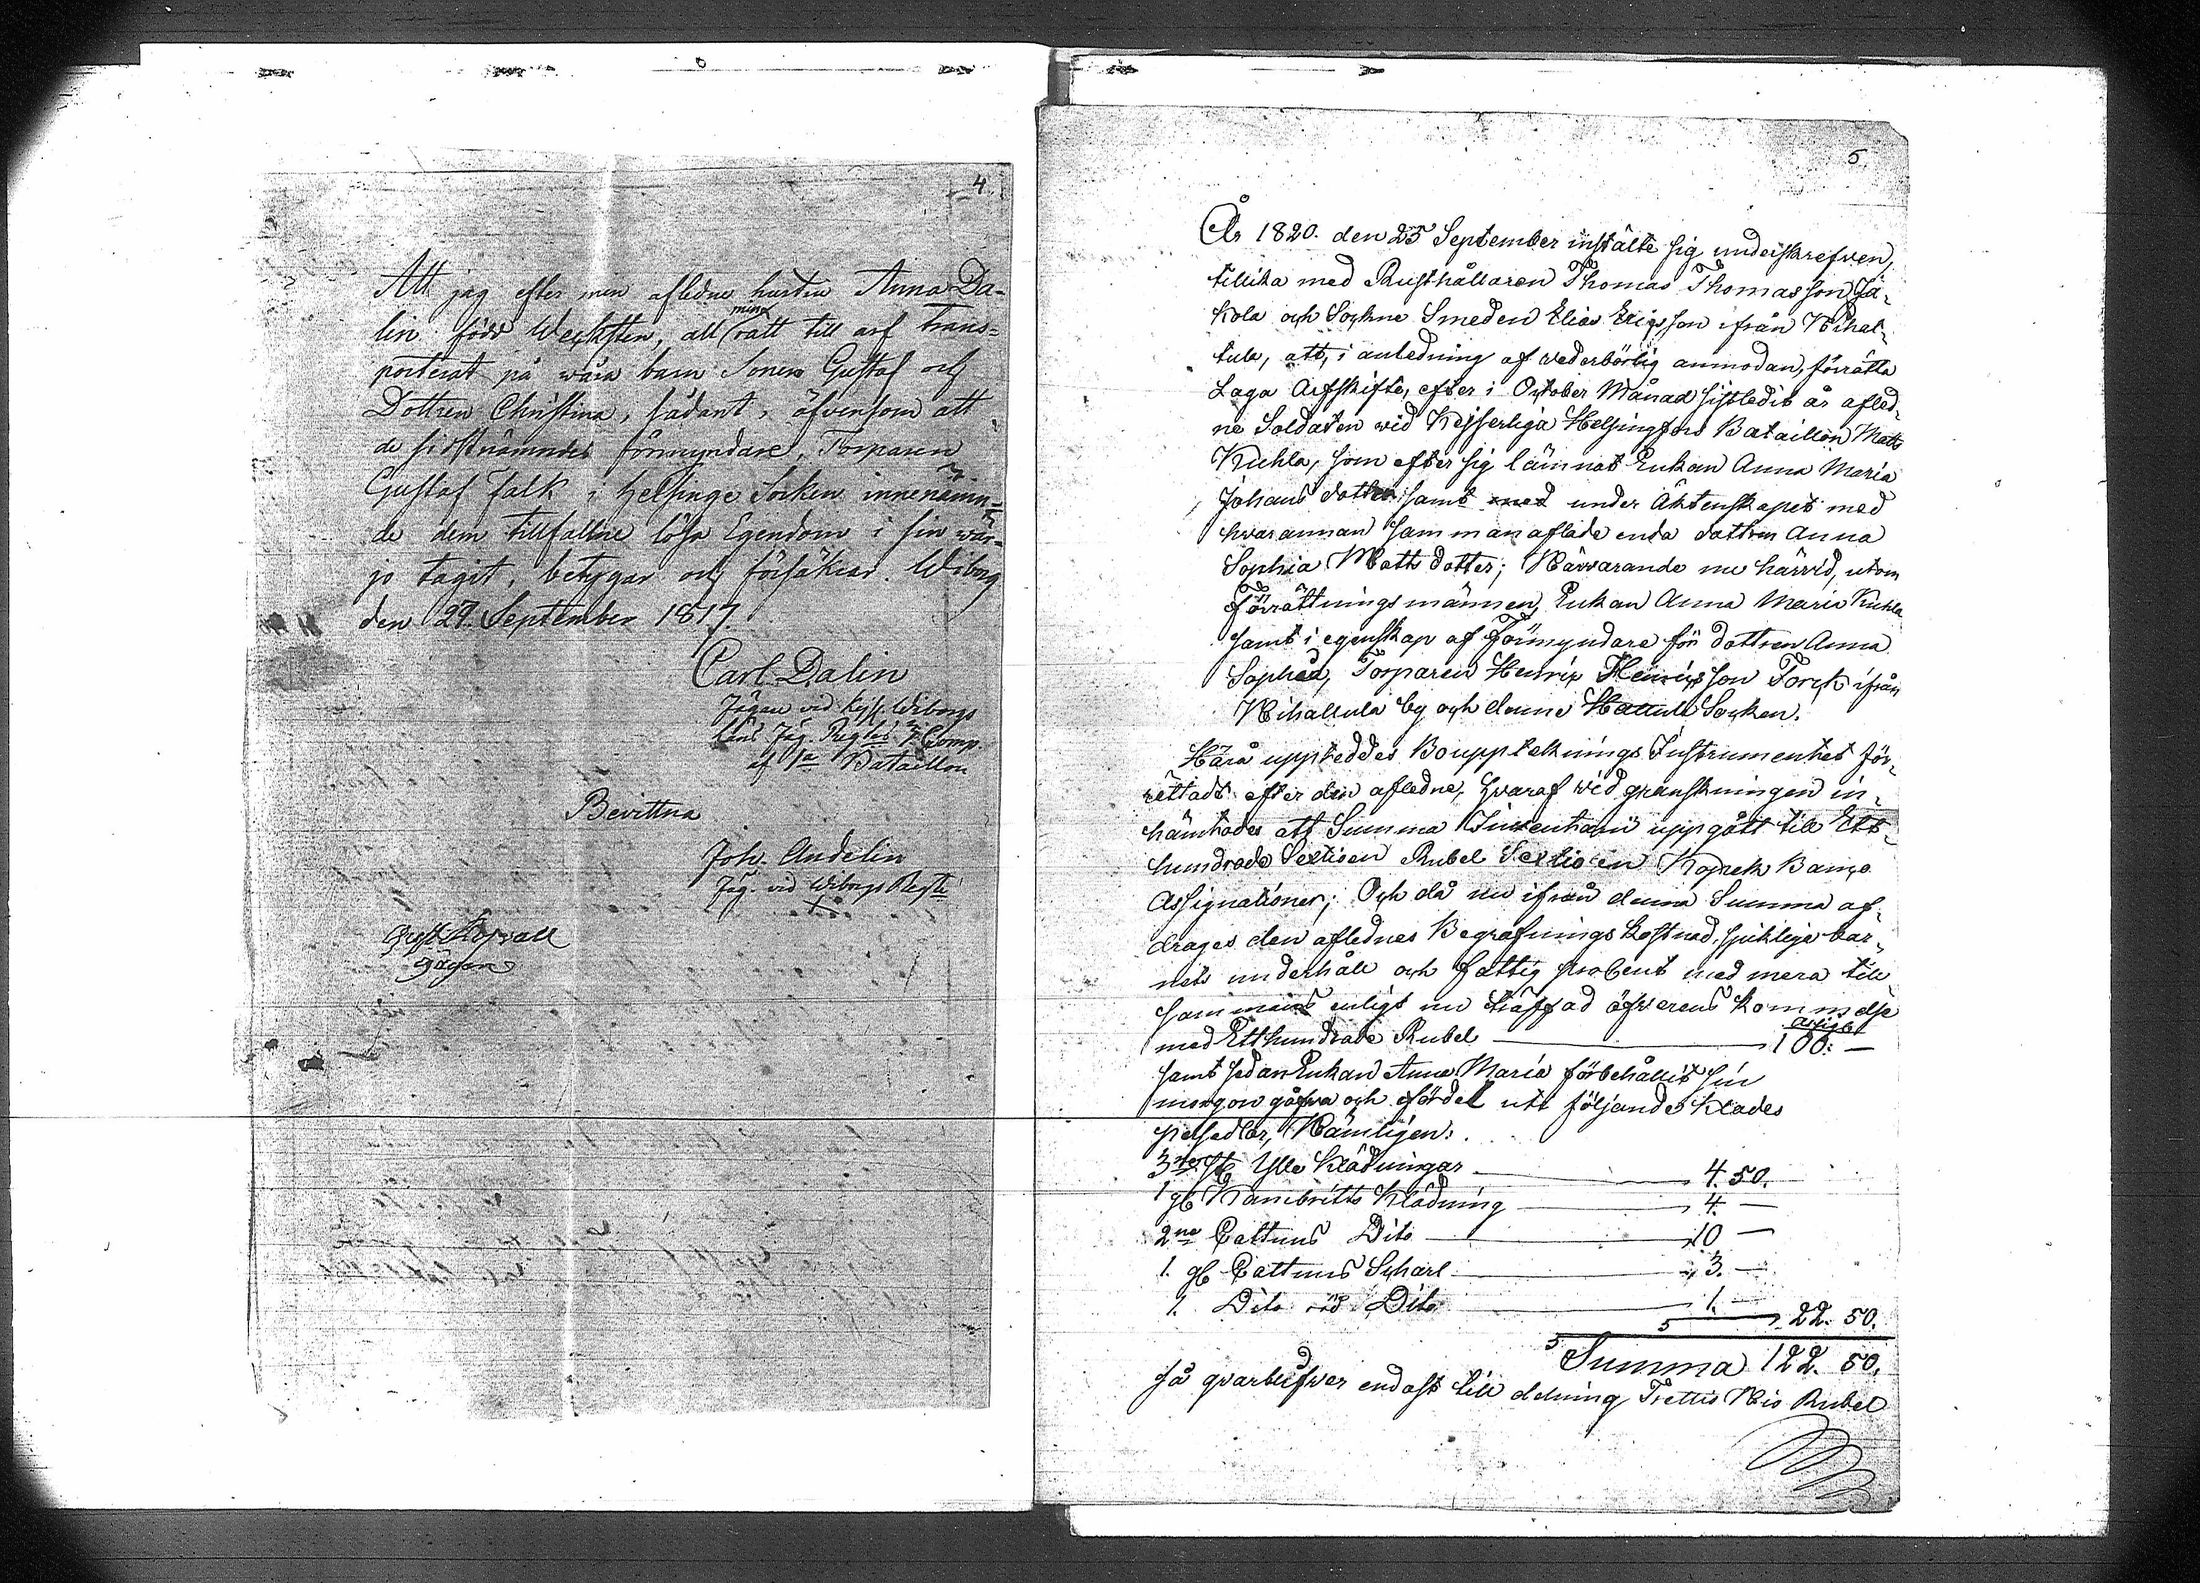 4
Att jag efter min afledne hustru Anna Da-
lin född Wecksten, all min rätt till arf trans-
porterat på wåra barn Sonen Gustaf och
Dottren Christina, sådant, äfvensom att
de sistnämndes förmyndare, Torparen
Gustaf Falk i Helsinge Socken innenämn-
de dem tillfallne lösa Egendom i sin vär-
jo tagit, betygar och försäkrar. Wiborg
den 27. September 1817.
Carl Dalin
Jägare vid Kejs. Wiborgs
Läns Jäg. Regte's Comp.
af 1a Bataillon
Bevittna
Joh. Andelin
Jäg. vid Wiborgs Regte
Gust.
Jägare
5
År 1820. den 25 September instälte sig underskrefven,
tillika med Rusthållaren Thomas Thomasson Ja-
kola och Sockne Smeden Elias Ericsson ifrån Nihat-
tula, att, i anledning af vederbörlig anmodan, förrätta
Laga Arfskifte, efter i October Månad sistledit år afled-
ne Soldaten wid Kejserliga Helsingfors Bataillon Matts
Kuhla, som efter sig lämnat Enkan Anna Maria
Johans dotter samt med under Äktenskapet med
hvarannan sammanaflade enda dottren Anna
Sophia Matts dotter; Närvarande nu härvid, utom
Förrättningsmännen, Enkan Anna Maria Kuhla
samt i egenskap af Förmyndare för dottren Anna
Sophia, Torparen Henric Henricsson Torck ifrån
Nihattula by och denne Hattula Socken.
Härå uppteddes Boupptecknings Instrumentet för-
rättadt efter den afledne, hvaraf vid granskningen in-
hämtades att Summa Inventarii uppgått till Ett-
hundrade Sextioen Rubel Sextioen Kopek Banco
Assignationer; Och då nu ifrån denna Summa af-
drages den aflednes Begrafnings kostnad, sjukliga bar-
nets underhåll och fattig procent med mera till
sammans enligt nu träffad öfverens kommelse
med Etthundrade Rubel 100: —
samt sedan Enkan Anna Maria förbehållit sin
morgongåfva och fördel utt följande Klädes
persedlar, Nämligen:
3ne st Ylle Klädningar 4. 50.
1 gl Kambritts Klädning 4. —
2ne Cattuns Dito 10 —
1. gl Cattuns Scharl 3. —
1. Dito röd Dito 1. — 22. 50.
Summa 122. 50.
så qvarblifver endast till delning Trettio Nio Rubel